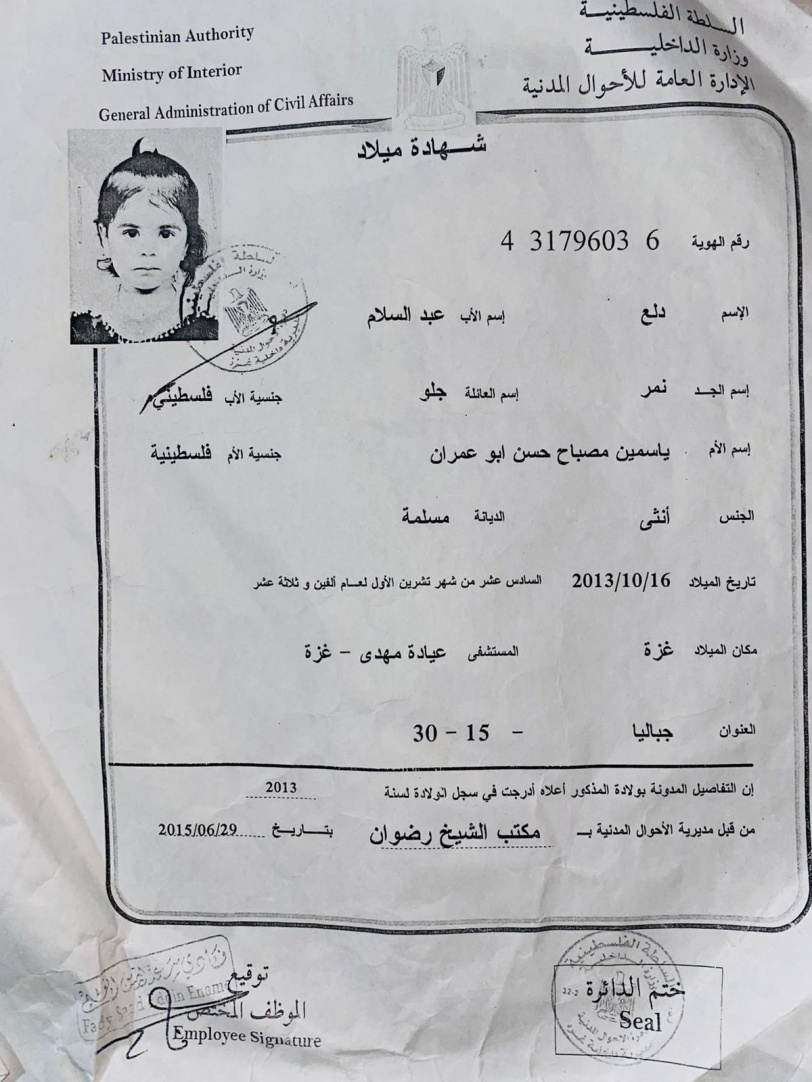 Palestinian Authority
Ministry of Interior
General Administration of Civil Affairs
السلطة الفلسطينية
وزارة الداخلية
الإدارة العامة للأحوال المدنية
شهادة ميلاد
رقم الهوية 4 3179603 6
الإسم دلع إسم الأب عبد السلام
إسم الجد نمر إسم العائلة جلو جنسية الأب فلسطيني
إسم الأم ياسمين مصباح حسن ابو عمران جنسية الأم فلسطينية
الجنس أنثى الديانة مسلمة
تاريخ الميلاد 2013/10/16 السادس عشر من شهر تشرين الأول لعام ألفين و ثلاثة عشر
مكان الميلاد غزة المستشفى عيادة مهدى - غزة
العنوان جباليا - 15 - 30
إن التفاصيل المدونة بولادة المذكور أعلاه أدرجت في سجل الولادة لسنة 2013
من قبل مديرية الأحوال المدنية بـ مكتب الشيخ رضوان بتاريخ 2015/06/29
توقيع
الموظف المختص
Employee Signature
ختم الدائرة
Seal